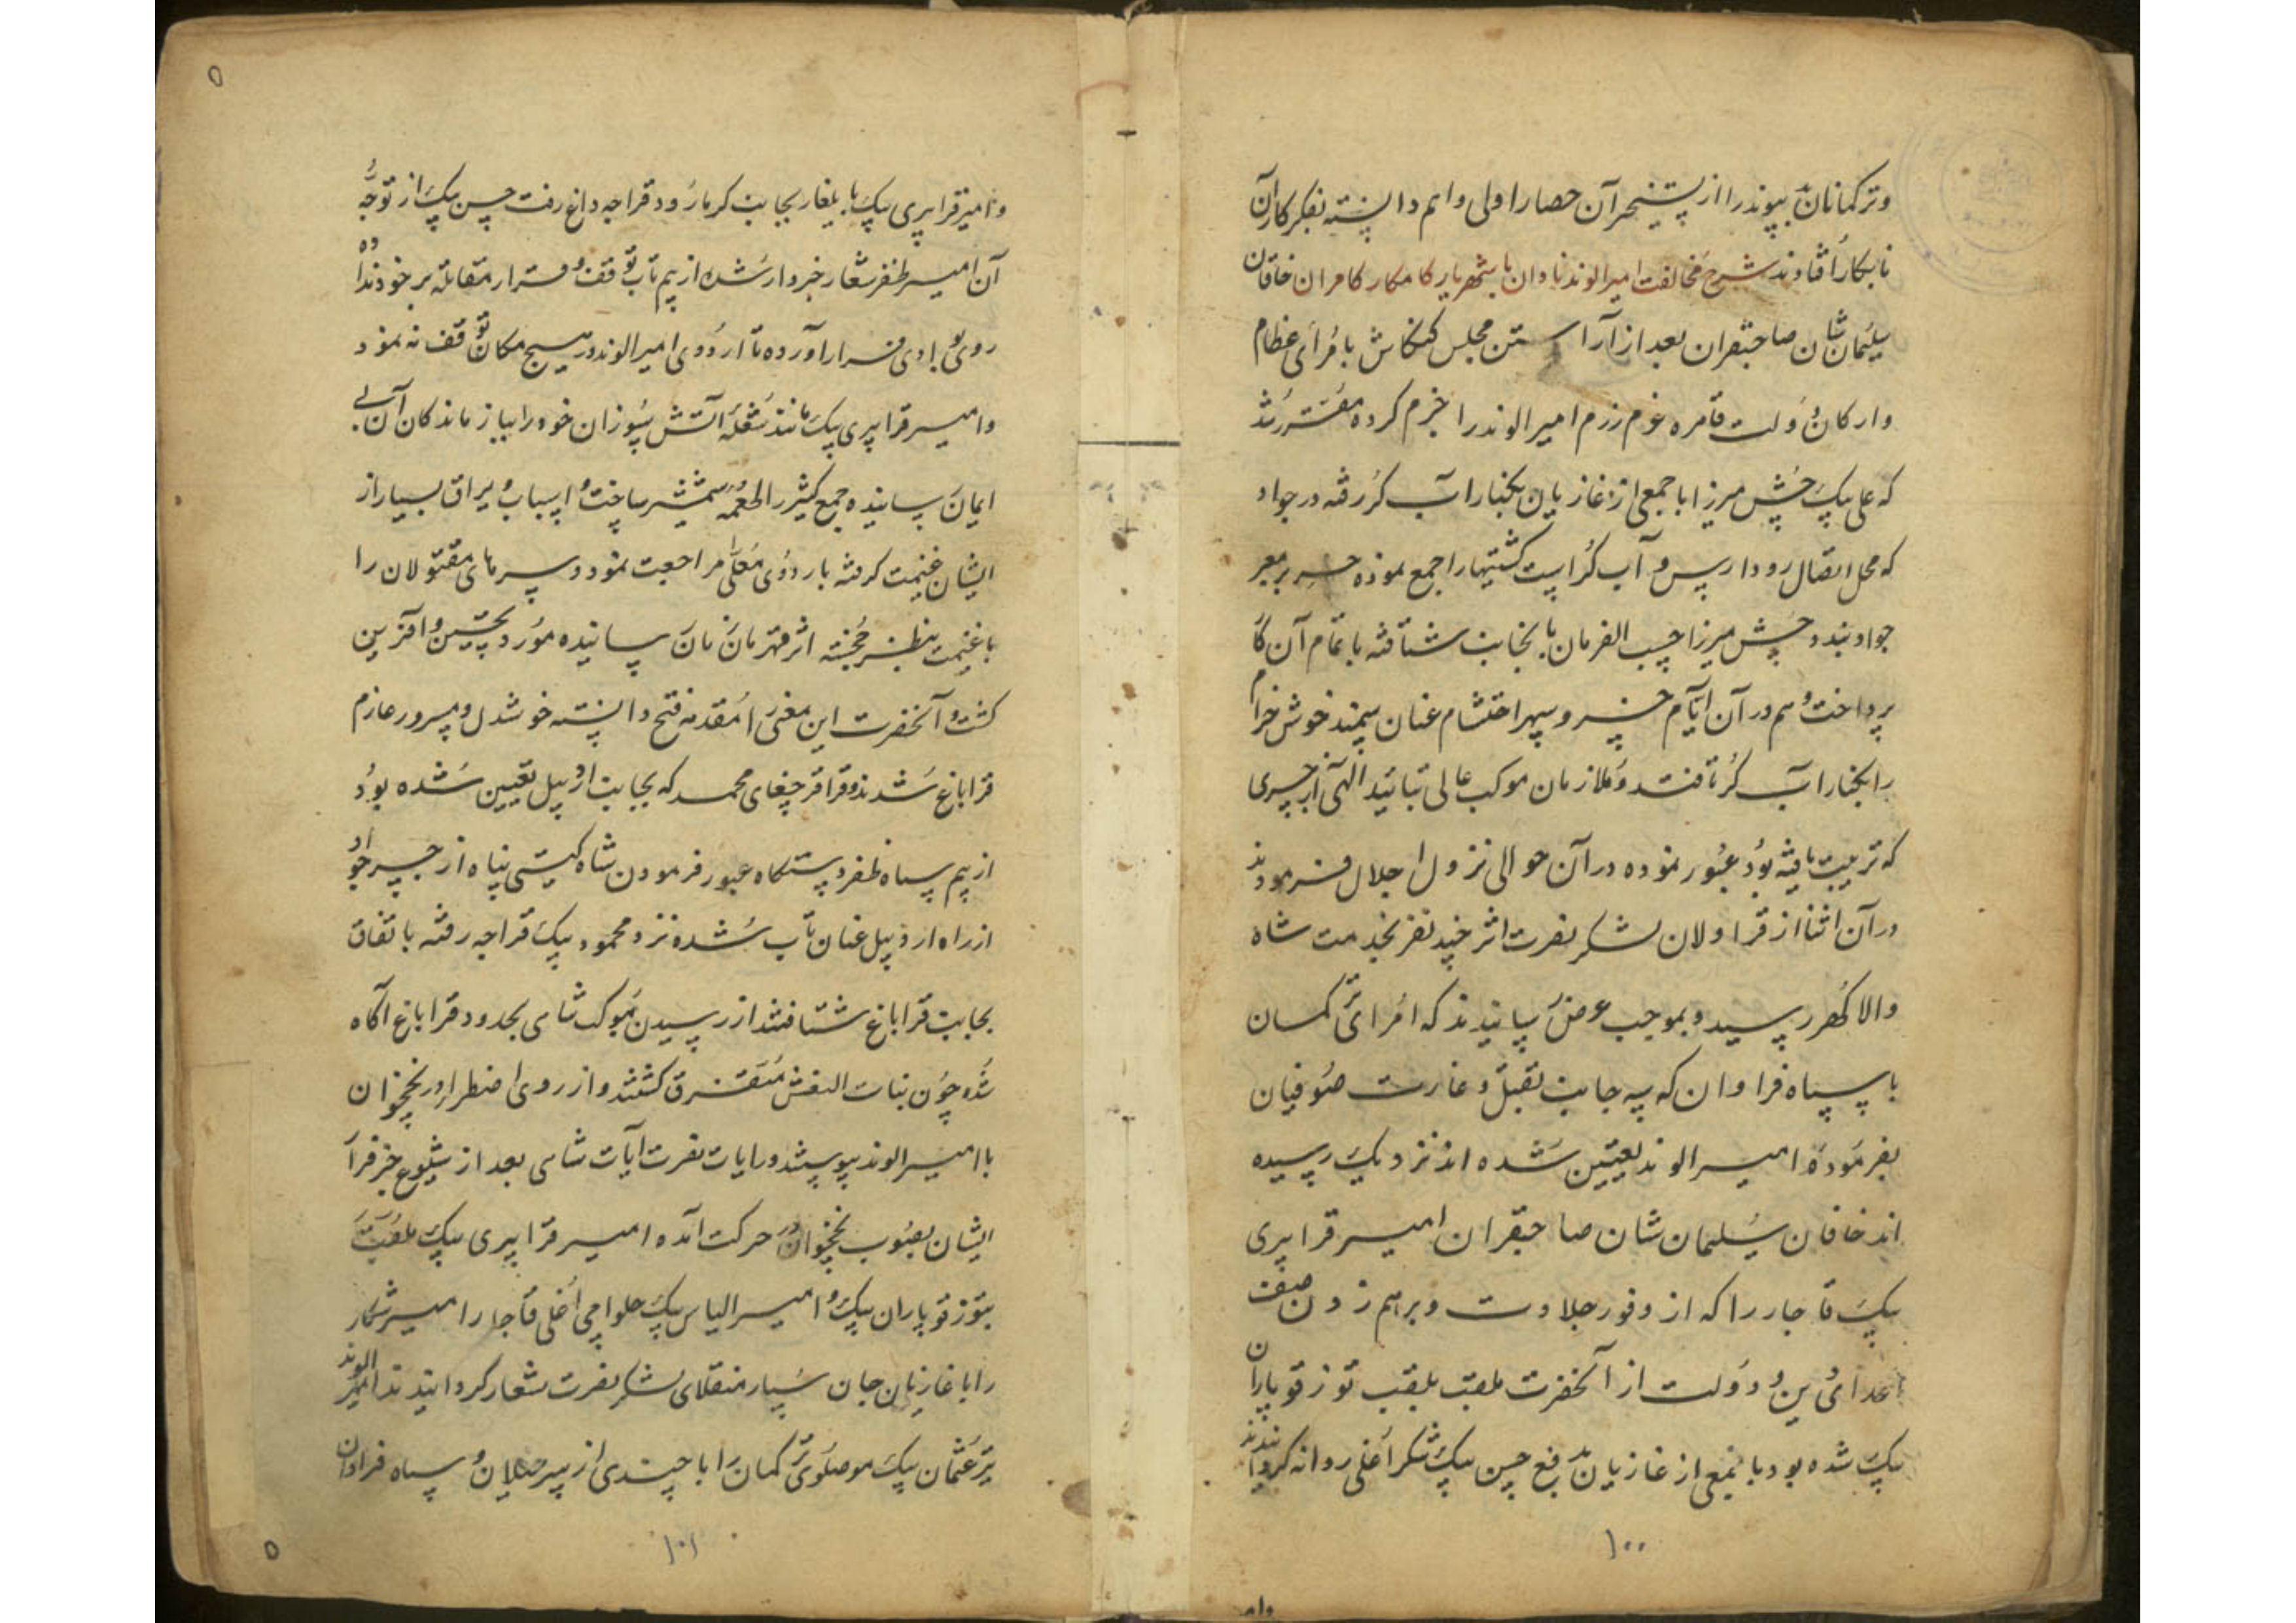 وترکمانان بیوند را از تسخیر آن حصار اولی واهم دانسته بفکر کار آن
نابکار افتادند شرح مخالفت امیر الوند نادان با شهریار کامکار کامران خاقان
سلیمان شان صاحبقران بعد از آراستن مجلس کنکاش با امرای عظام
وارکان دولت قاهره عزم رزم امیر الوند را جزم کرده مقرر شد
که علی بیک چپش میرزا با جمعی از غازیان بکنار آب کر رفته در جواد
که محل اتصال رود ارس و آب کر است کشتیها را جمع نموده جسر بر معبر
جواد بندد چپش میرزا حسب الفرمان بانجانب شتافته باتمام آن کار
پرداخت و هم در آن ایام خسرو سپهر احتشام عنان سمند خوش خرام
را بکنار آب کر تافتند و ملازمان موکب عالی بتائید الهی از جسری
که ترتیب یافته بود عبور نموده در آن حوالی نزول اجلال فرمودند
در آن اثنا از قراولان لشکر نصرت اثر چند نفر بخدمت شاه
والا کهر رسید و بموجب عرض رسانیدند که امرای ترکمان
با سپاه فراوان که به جانب بقتل و غارت صوفیان
بفرموده امیر الوند تعیین شده اند نزدیک رسیده
اند خاقان سلیمان شان صاحبقران امیر قرا پیری
بیک قاجار را که از وفور جلادت و برهم زدن صف
اعدای دین و دولت از آنحضرت ملقب بلقب توز قوپاران
بیک شده بود با جمعی از غازیان بدفع حسن بیک شکر اغلی روانه کردانیدند
۱۰۰
وامیر قرا پیری بیک بایلغار بجانب کرمارود قراجه داغ رفت حسن بیک از توجه
آن امیر ظفر شعار خبردار شده از بیم تاب توقف و قرار مقابله بر خود نداده
روی بوادی فرار آورده تا اردوی امیر الوند در هیچ مکان توقف نه نمود
وامیر قرا پیری بیک مانند شعله آتش سوزان خود را ببازماندکان آن بی
ایمان رسانیده جمع کثیر را طعمه شمشیر ساخت و اسباب و یراق بسیار از
ایشان غنیمت کرفته باردوی معلی مراجعت نمود و سرهای مقتولان را
با غنیمت بنظر خجسته اثر قهرمان زمان رسانیده مورد تحسین و آفرین
کشت و آنحضرت این معنی را مقدمه فتح دانسته خوشدل و مسرور عازم
قراباغ شدند و قراقرچغای محمد که بجانب اردبیل تعیین شده بود
از بیم سپاه ظفر دستکاه عبور فرمودن شاه کیتی پناه از جسر جواد
از راه اردبیل عنان تاب شده نزد محمود بیک قراجه رفته باتفاق
بجانب قراباغ شتافتند از رسیدن موکب شاهی بحدود قراباغ آکاه
شده چون بنات النعش متفرق کشتند و از روی اضطرار در نخچوان
با امیر الوند پیوستند و رایات نصرت آیات شاهی بعد از شیوع خبر فرار
ایشان بصوب نخچوان در حرکت آمده امیر قرا پیری بیک ملقب
بتوز قوپاران بیک و امیر الیاس بیک حلواچی اغلی قاجار را میر شکار
را با غازیان جان سپار منقلای لشکر نصرت شعار کردانیدند امیر الوند
نیز عثمان بیک موصلوی ترکمان را با چندی از سرخیلان و سپاه فراوان
۱۰۱